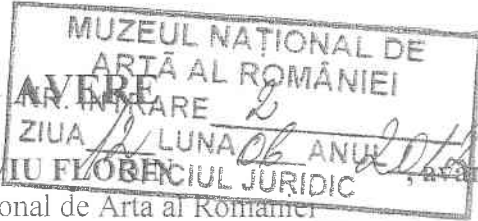 MUZEUL NAȚIONAL DE
ARTĂ AL ROMÂNIEI
AVERE
NR. INTRARE 2
ZIUA 12 LUNA 06 ANUL
IU FLORIN
OFICIUL JURIDIC
onal de Arta al Romaniei